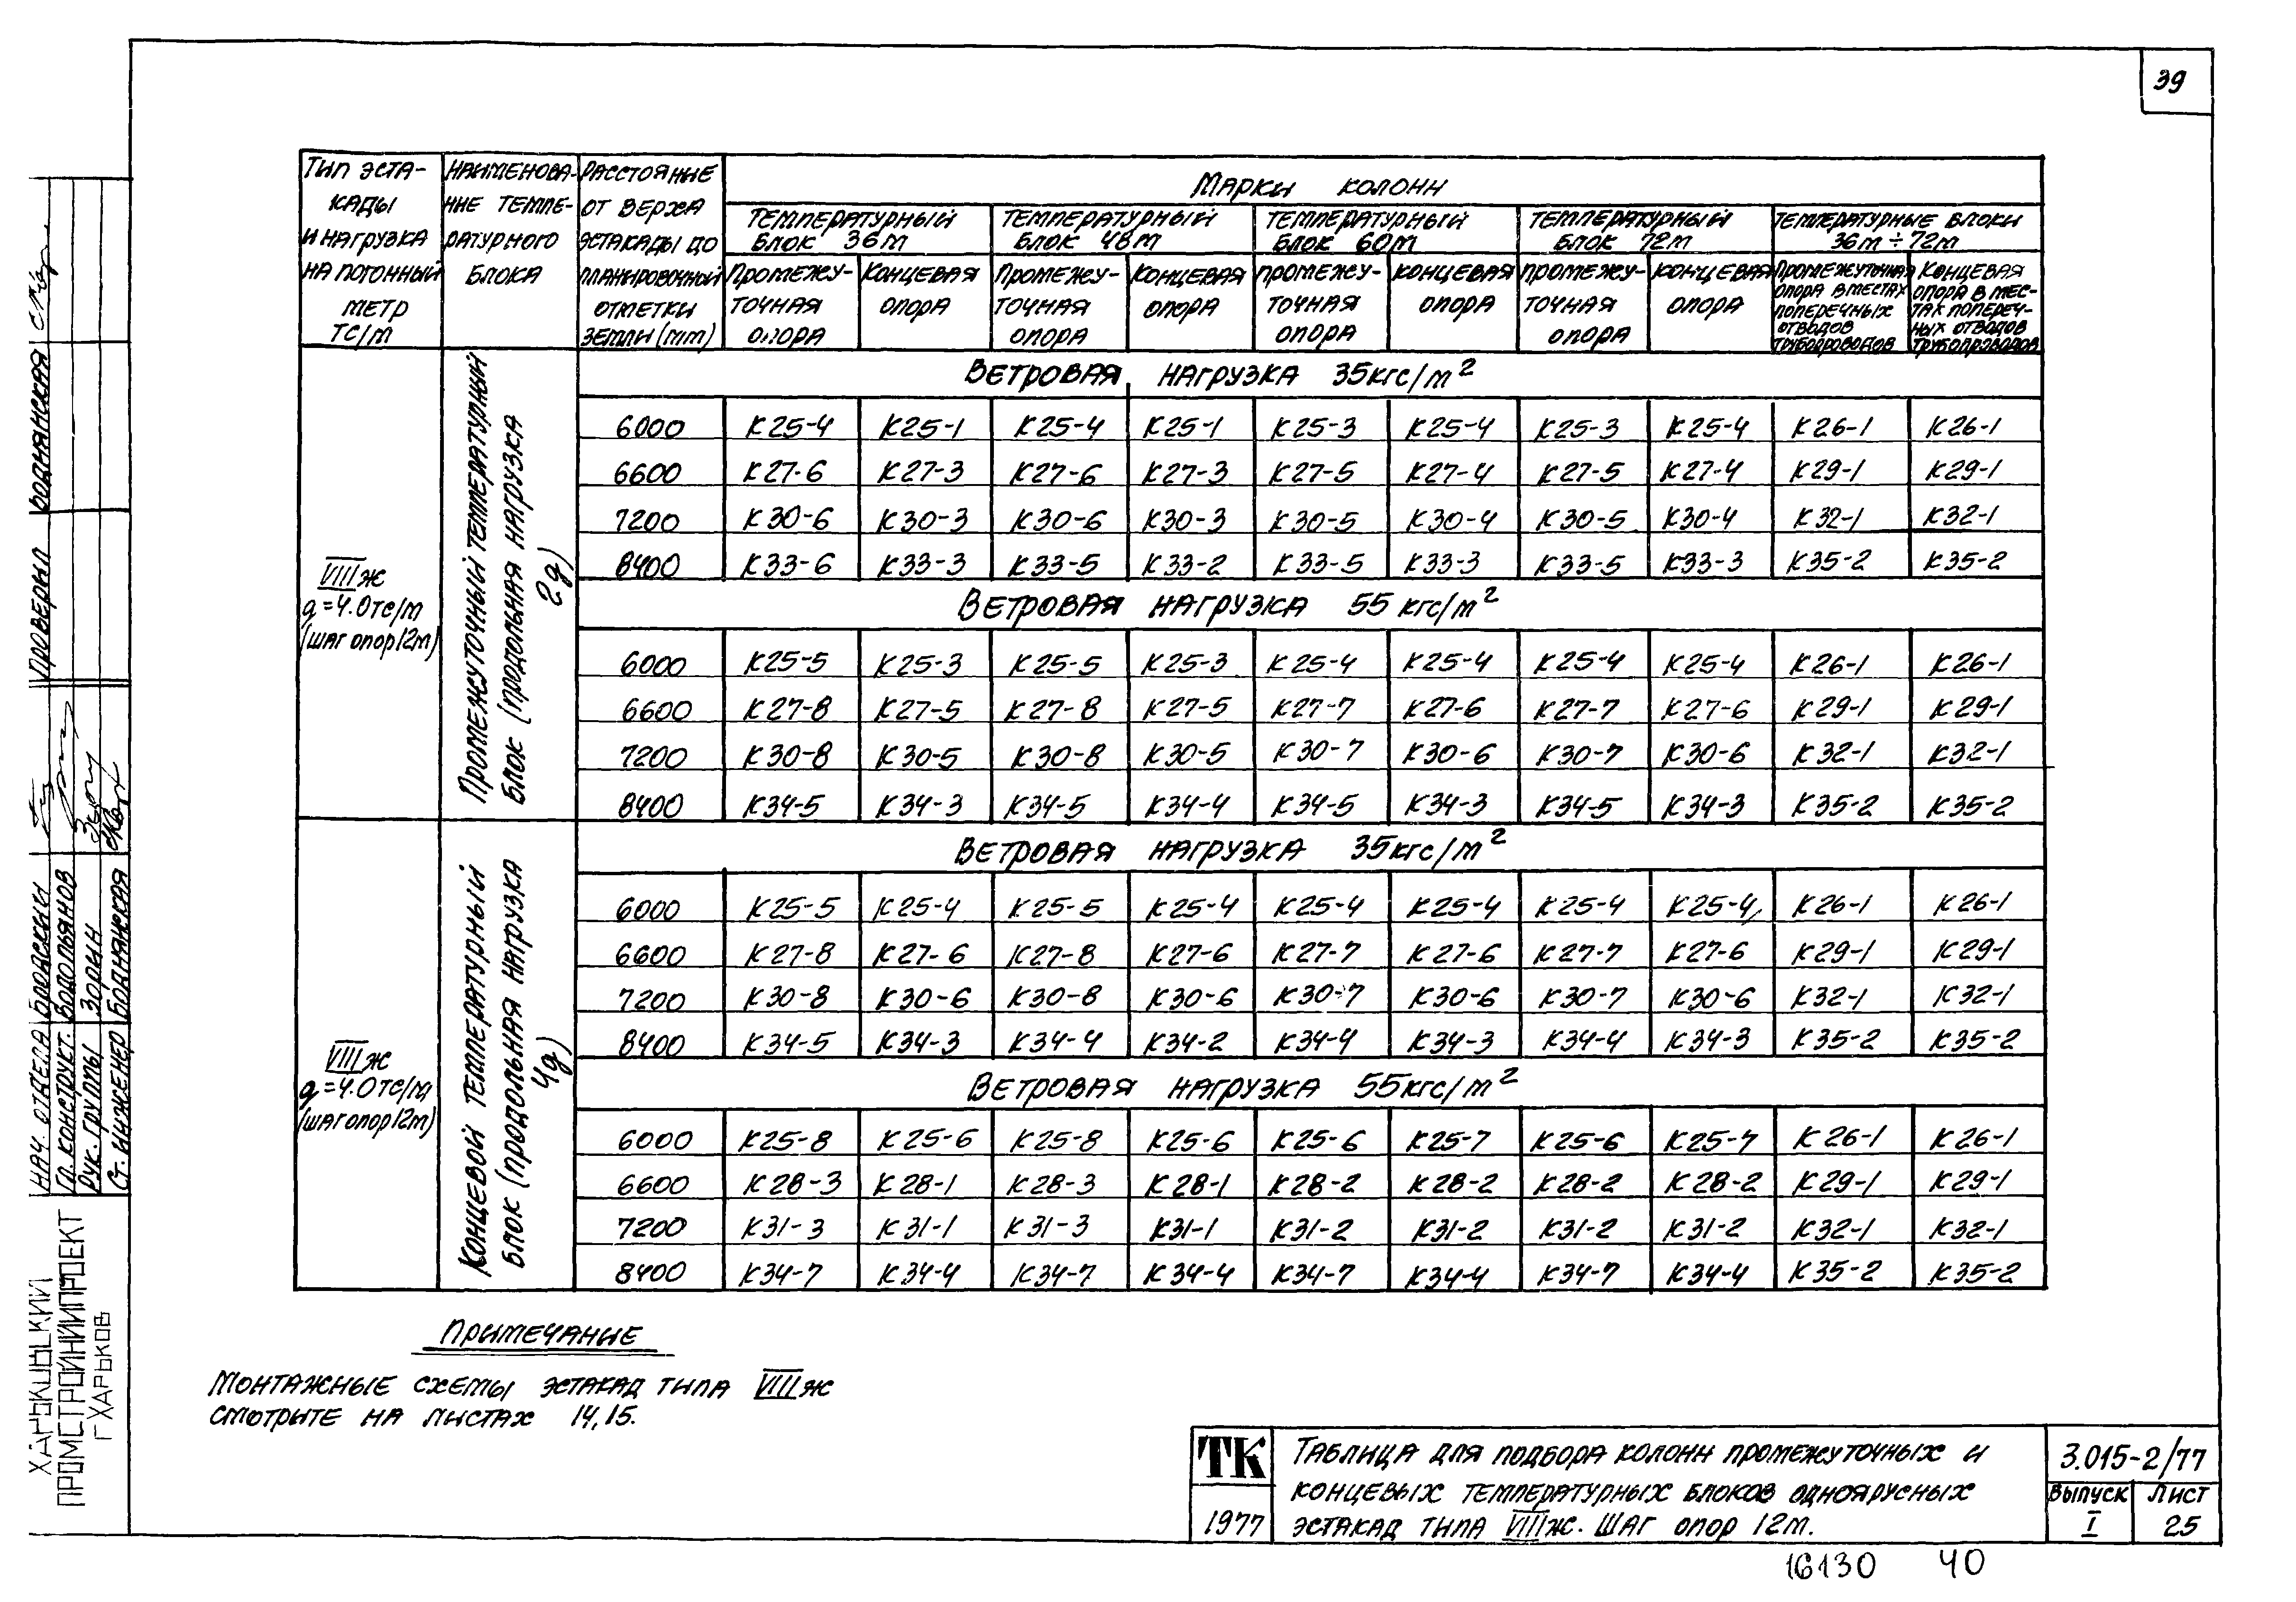 39
ТИП ЭСТАКАДЫ И НАГРУЗКА НА ПОГОННЫЙ МЕТР ТС/М
НАИМЕНОВАНИЕ ТЕМПЕРАТУРНОГО БЛОКА
РАССТОЯНИЕ ОТ ВЕРХА ЭСТАКАДЫ ДО ПЛАНИРОВОЧНОЙ ОТМЕТКИ ЗЕМЛИ (мм)
МАРКИ КОЛОНН
ТЕМПЕРАТУРНЫЙ БЛОК 36М
ТЕМПЕРАТУРНЫЙ БЛОК 48М
ТЕМПЕРАТУРНЫЙ БЛОК 60М
ТЕМПЕРАТУРНЫЙ БЛОК 72М
ТЕМПЕРАТУРНЫЕ БЛОКИ 36М ÷ 72М
ПРОМЕЖУТОЧНАЯ ОПОРА
КОНЦЕВАЯ ОПОРА
ПРОМЕЖУТОЧНАЯ ОПОРА
КОНЦЕВАЯ ОПОРА
ПРОМЕЖУТОЧНАЯ ОПОРА
КОНЦЕВАЯ ОПОРА
ПРОМЕЖУТОЧНАЯ ОПОРА
КОНЦЕВАЯ ОПОРА
ПРОМЕЖУТОЧНАЯ ОПОРА В МЕСТАХ ПОПЕРЕЧНЫХ ОТВОДОВ ТРУБОПРОВОДОВ
КОНЦЕВАЯ ОПОРА В МЕСТАХ ПОПЕРЕЧНЫХ ОТВОДОВ ТРУБОПРОВОДОВ
VIIIж
q=4.0ТС/М
(ШАГ ОПОР 12М)
ПРОМЕЖУТОЧНЫЙ ТЕМПЕРАТУРНЫЙ
БЛОК (ПРОДОЛЬНАЯ НАГРУЗКА
2q)
ВЕТРОВАЯ НАГРУЗКА 35КГС/М²
6000 К25-4 К25-1 К25-4 К25-1 К25-3 К25-4 К25-3 К25-4 К26-1 К26-1
6600 К27-6 К27-3 К27-6 К27-3 К27-5 К27-4 К27-5 К27-4 К29-1 К29-1
7200 К30-6 К30-3 К30-6 К30-3 К30-5 К30-4 К30-5 К30-4 К32-1 К32-1
8400 К33-6 К33-3 К33-5 К33-2 К33-5 К33-3 К33-5 К33-3 К35-2 К35-2
ВЕТРОВАЯ НАГРУЗКА 55 КГС/М²
6000 К25-5 К25-3 К25-5 К25-3 К25-4 К25-4 К25-4 К25-4 К26-1 К26-1
6600 К27-8 К27-5 К27-8 К27-5 К27-7 К27-6 К27-7 К27-6 К29-1 К29-1
7200 К30-8 К30-5 К30-8 К30-5 К30-7 К30-6 К30-7 К30-6 К32-1 К32-1
8400 К34-5 К34-3 К34-5 К34-4 К34-5 К34-3 К34-5 К34-3 К35-2 К35-2
VIIIж
q=4.0ТС/М
(ШАГ ОПОР 12М)
КОНЦЕВОЙ ТЕМПЕРАТУРНЫЙ
БЛОК (ПРОДОЛЬНАЯ НАГРУЗКА
4q)
ВЕТРОВАЯ НАГРУЗКА 35КГС/М²
6000 К25-5 К25-4 К25-5 К25-4 К25-4 К25-4 К25-4 К25-4 К26-1 К26-1
6600 К27-8 К27-6 К27-8 К27-6 К27-7 К27-6 К27-7 К27-6 К29-1 К29-1
7200 К30-8 К30-6 К30-8 К30-6 К30-7 К30-6 К30-7 К30-6 К32-1 К32-1
8400 К34-5 К34-3 К34-4 К34-2 К34-4 К34-3 К34-4 К34-3 К35-2 К35-2
ВЕТРОВАЯ НАГРУЗКА 55КГС/М²
6000 К25-8 К25-6 К25-8 К25-6 К25-6 К25-7 К25-6 К25-7 К26-1 К26-1
6600 К28-3 К28-1 К28-3 К28-1 К28-2 К28-2 К28-2 К28-2 К29-1 К29-1
7200 К31-3 К31-1 К31-3 К31-1 К31-2 К31-2 К31-2 К31-2 К32-1 К32-1
8400 К34-7 К34-4 К34-7 К34-4 К34-7 К34-4 К34-7 К34-4 К35-2 К35-2
ПРИМЕЧАНИЕ
МОНТАЖНЫЕ СХЕМЫ ЭСТАКАД ТИПА VIIIж
СМОТРИТЕ НА ЛИСТАХ 14,15.
ТК
1977
ТАБЛИЦА ДЛЯ ПОДБОРА КОЛОНН ПРОМЕЖУТОЧНЫХ И
КОНЦЕВЫХ ТЕМПЕРАТУРНЫХ БЛОКОВ ОДНОЯРУСНЫХ
ЭСТАКАД ТИПА VIIIж. ШАГ ОПОР 12М.
3.015-2/77
ВЫПУСК I
ЛИСТ 25
16130 40
ПРОВЕРИЛ БОДНЯНСКАЯ
НАЧ. ОТДЕЛА БРОДСКИЙ
ГЛ. КОНСТРУКТ. ВОДОЛЬЯНОВ
РУК. ГРУППЫ ЗОРИН
СТ. ИНЖЕНЕР БОДНЯНСКАЯ
ХАРЬКОВСКИЙ
ПРОМСТРОЙНИИПРОЕКТ
Г ХАРЬКОВ